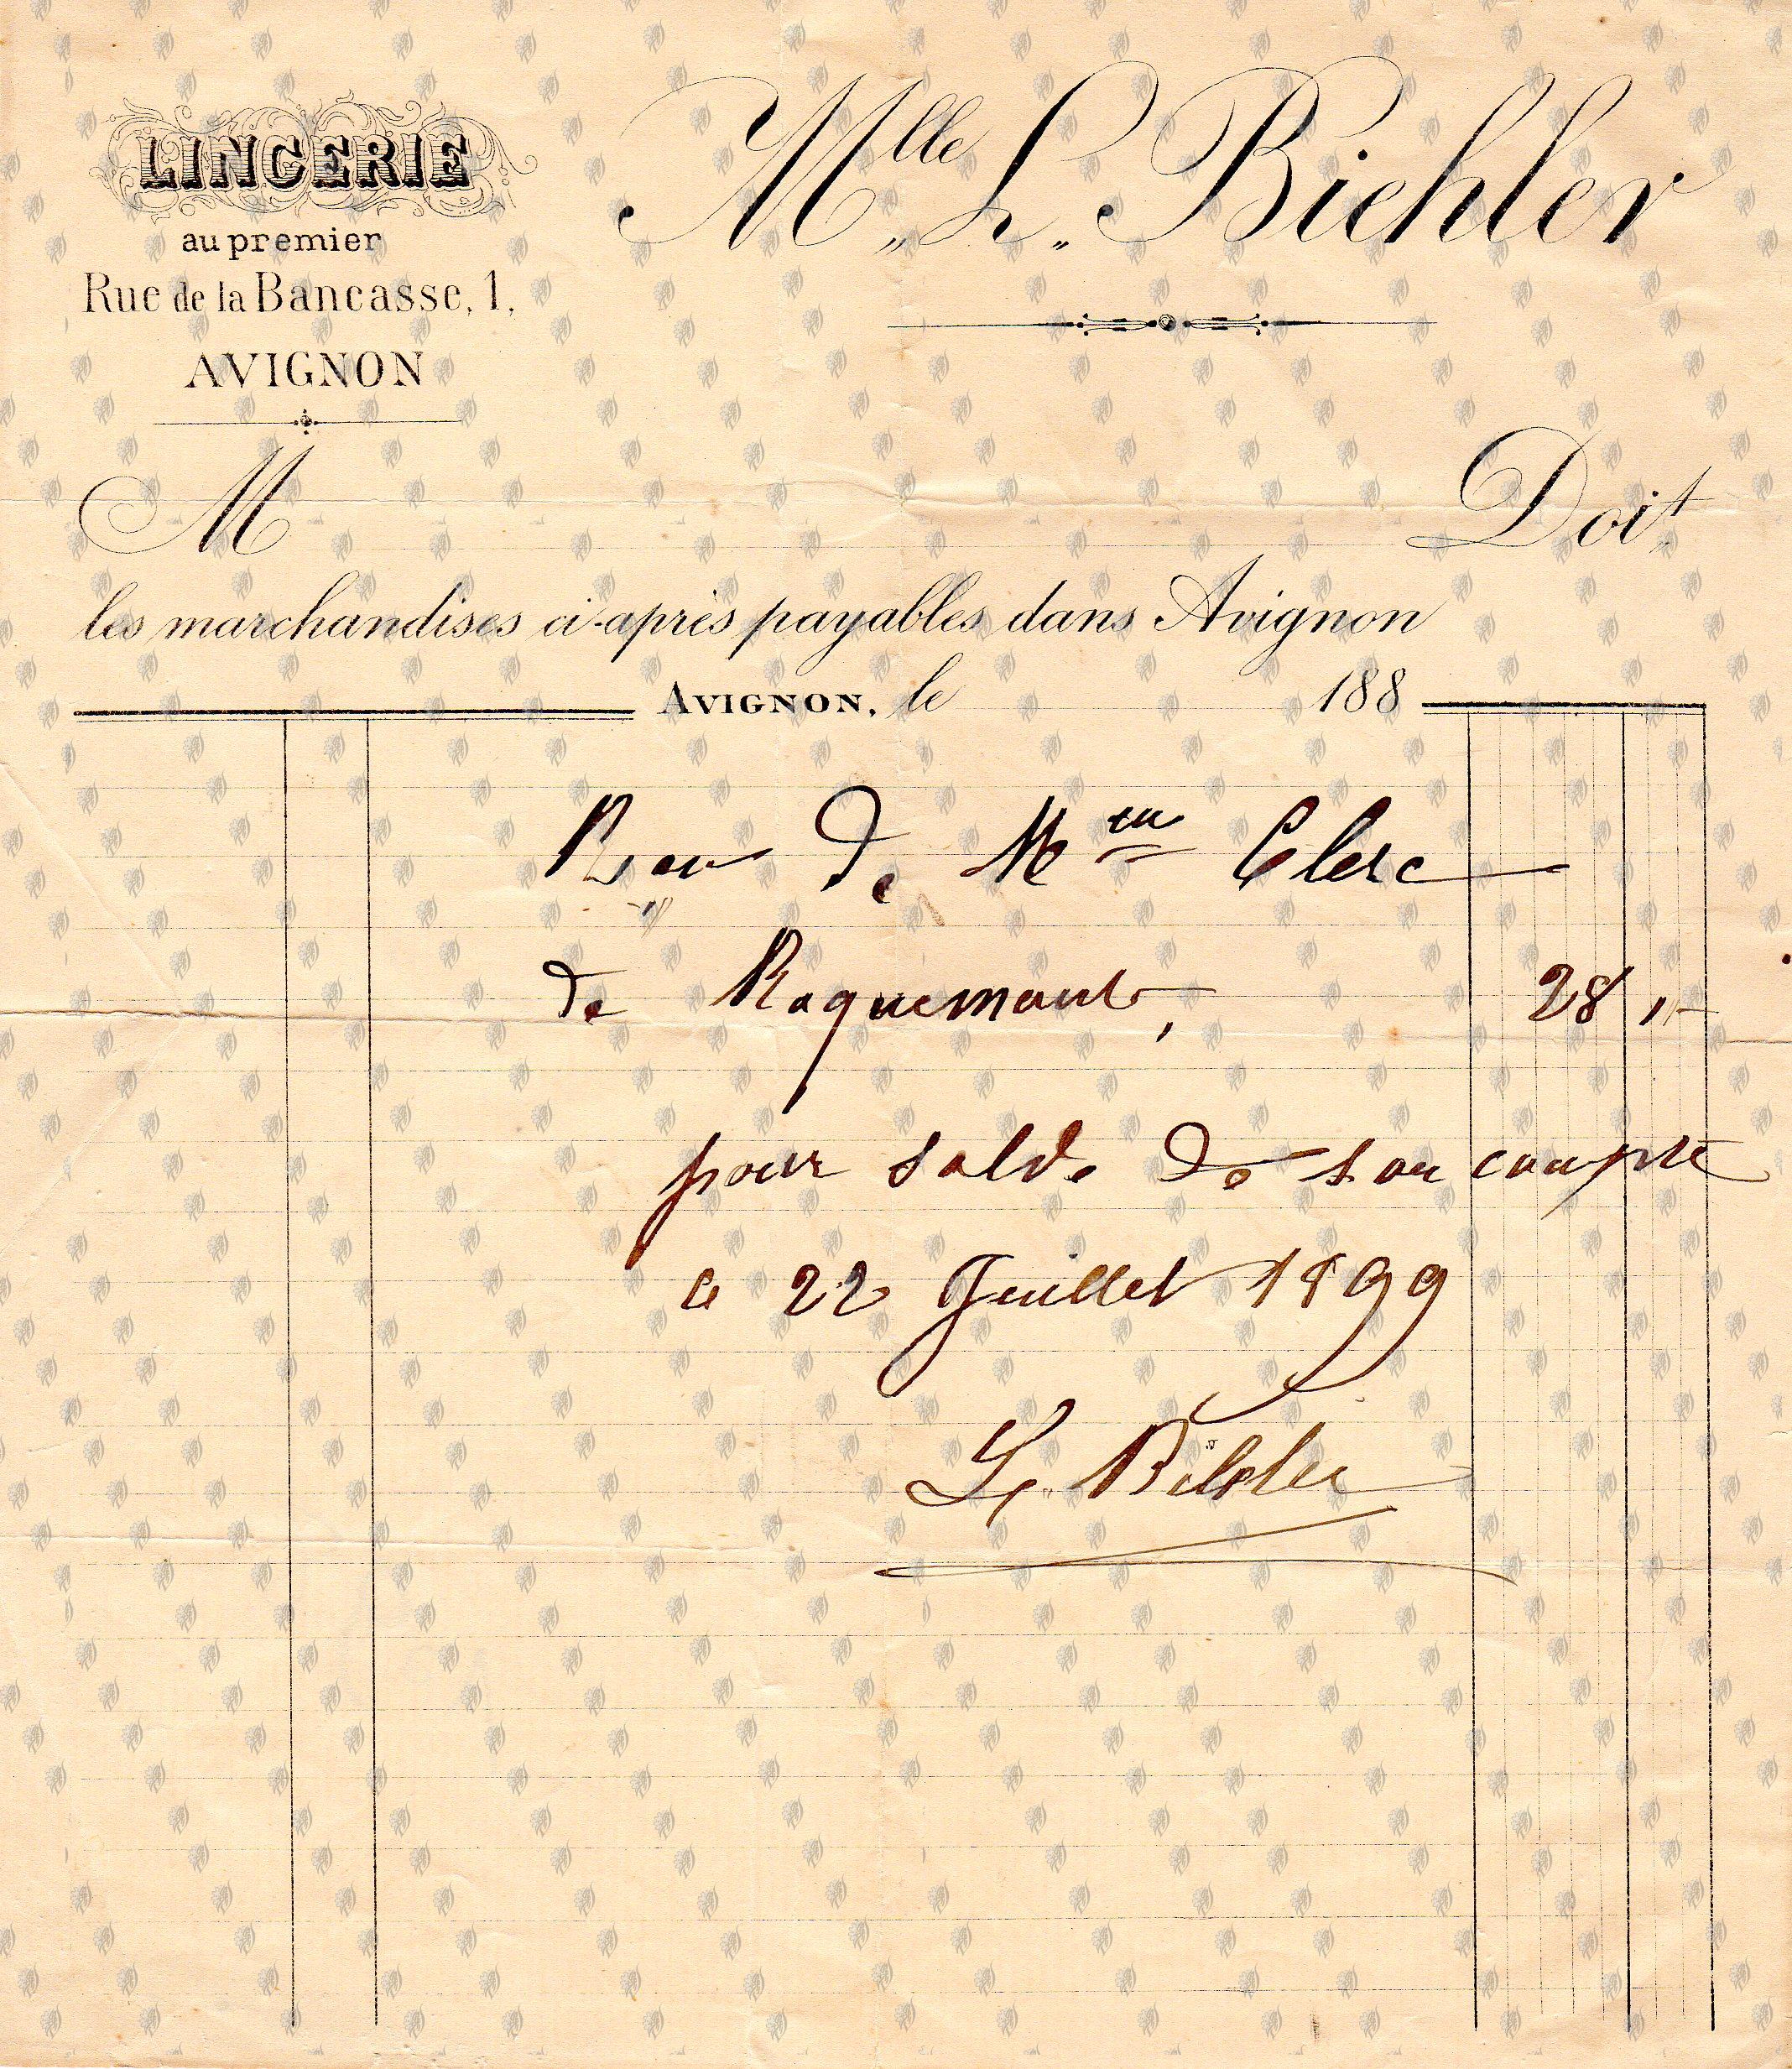 LINGERIE
au premier
Rue de la Bancasse, 1,
AVIGNON
Mlle L. Bichler
M Doit
les marchandises ci-après payables dans Avignon
AVIGNON, le 188
Reçu de Mme Clerc
de Roquemaure, 28 "
pour solde de son compte
le 22 Juillet 1899
L. Bichler